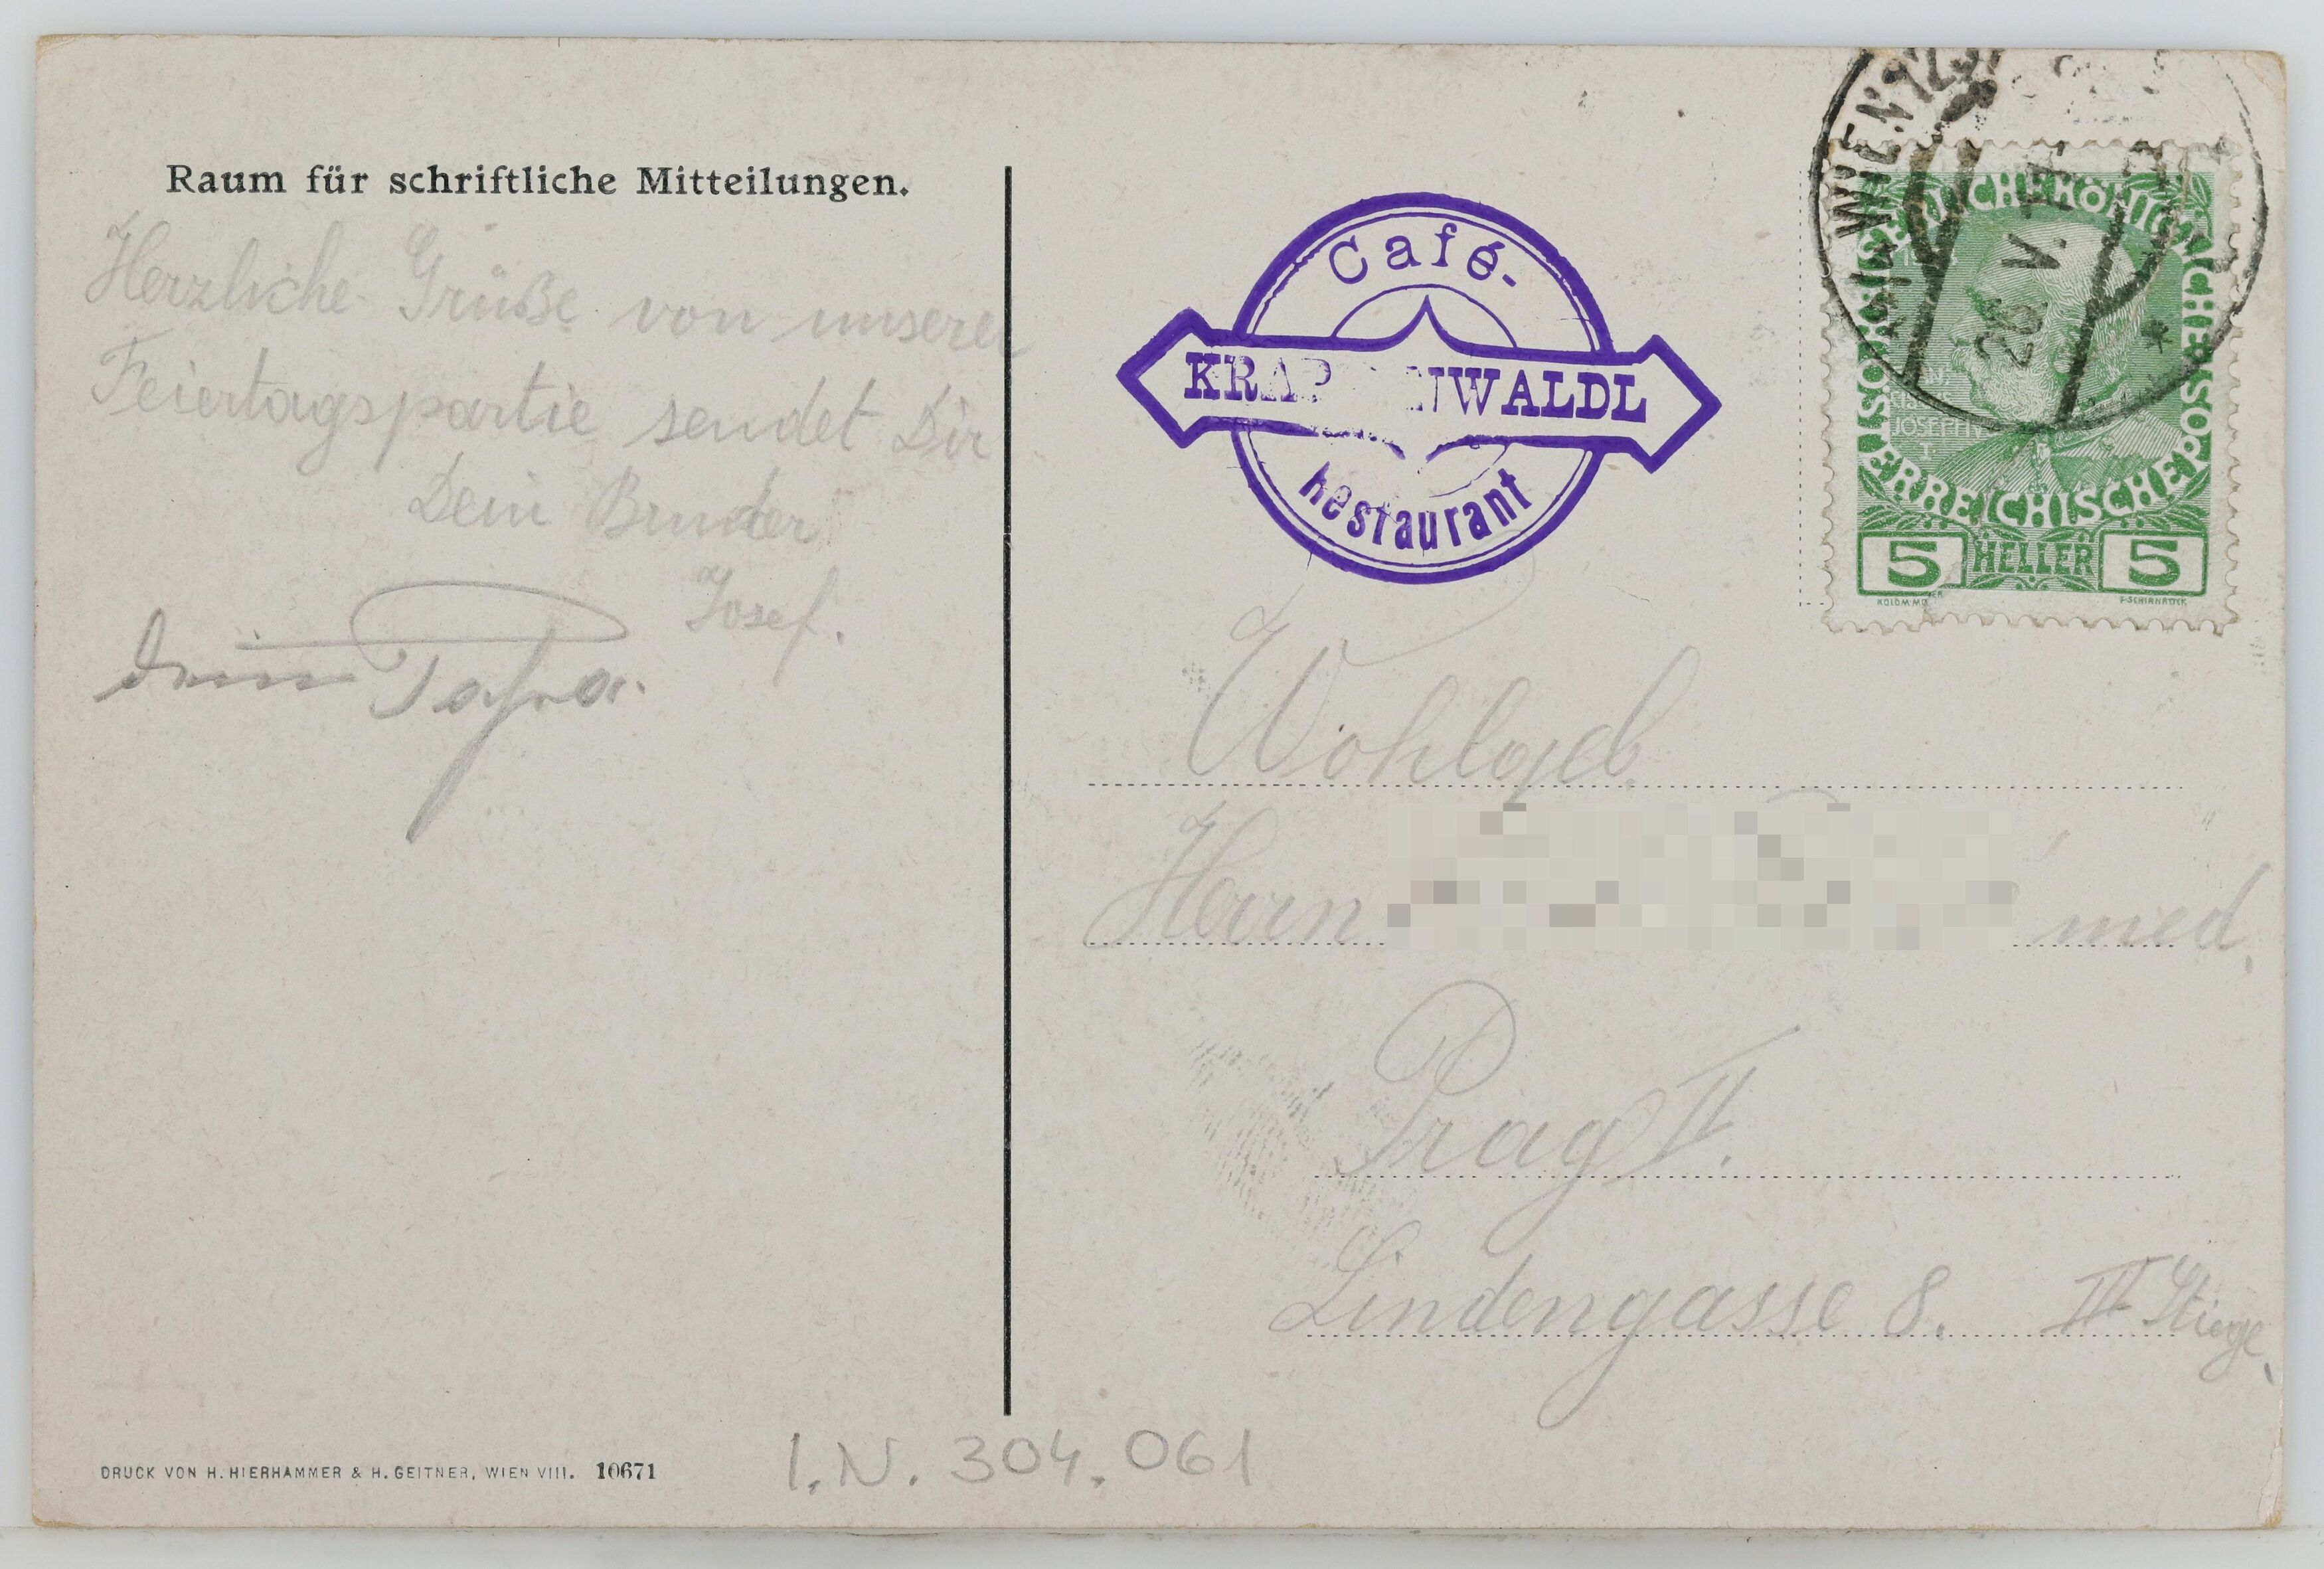 Raum für schriftliche Mitteilungen.
Herzliche Grüße von unserer
Feiertagspartie sendet Dir
Dein Bruder
Josef.
dein Papa.
DRUCK VON H. HIERHAMMER & H. GEITNER, WIEN VIII. 10671
I.N. 304.061
Café-
KRAP NWALDL
Restaurant
WIEN
26 V.
KAISERLICHE KÖNIGLICHE ÖSTERREICHISCHE POST
JOSEPH
I.
5 HELLER 5
KOLOM.MOSER F.SCHIRNBÖCK
Wohlgeb
Herrn med.
Prag II.
Lindengasse 8. III Stiege.